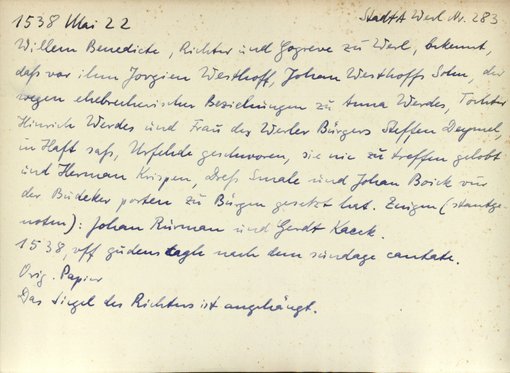 1538 Mai 22
StadtA Werl Nr. 283
Willem Benedicte, Richter und Gogreve zu Werl, bekennt,
daß vor ihm Jorgien Westhoff, Johan Westhoffs Sohn, der
wegen ehebrecherischer Beziehungen zu Anna Werdes, Tochter
Hinrich Werdes und Frau des Werler Bürgers Steffen Deymel,
in Haft saß, Urfehde geschworen, sie nie zu treffen gelobt
und Herman Krispen, Dreß Smale und Johan Boick vur
der Budeker porten zu Bürgen gesetzt hat. Zeugen (stantge-
noten): Johan Rürman und Gerdt Kaeck.
1538, vff gudenstagh nach dem sundage cantate.
Orig. Papier
Das Siegel des Richters ist angehängt.